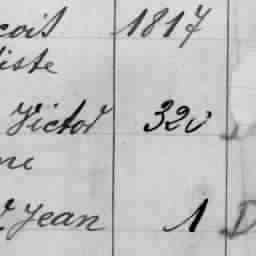 çois 1817
iste
Victor 320
ne
Jean 1 D